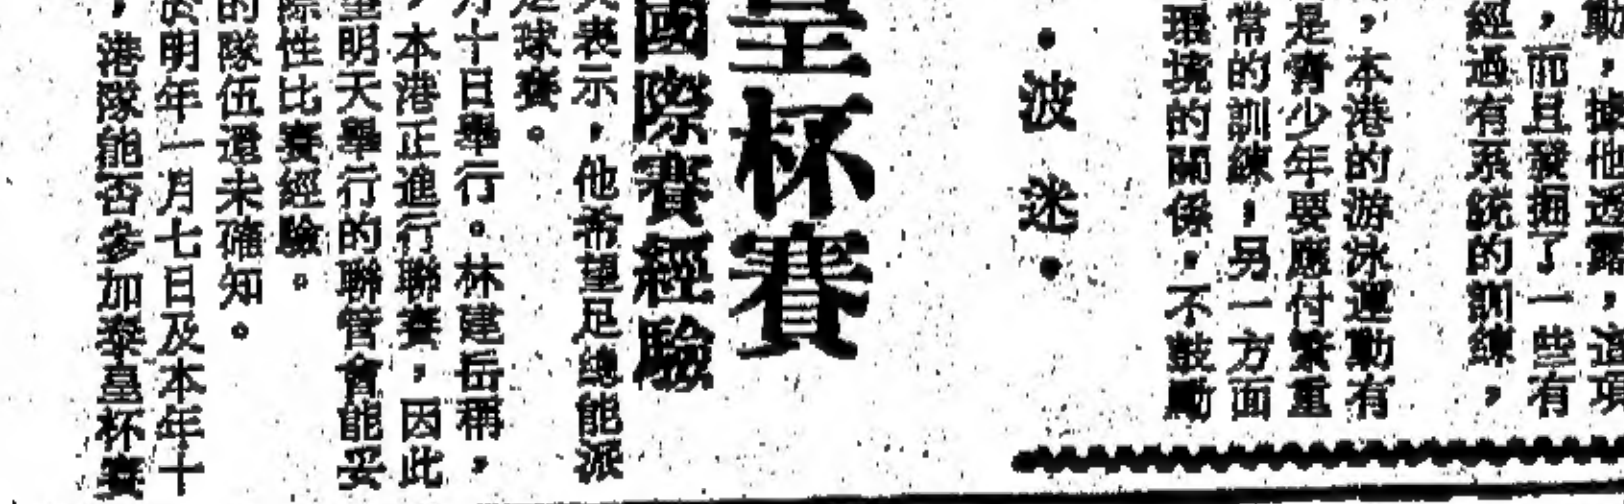 動，據他透露，這項
，而且發掘了一些有
經過有系統的訓練，
，本港的游泳運動有
是青少年要應付繁重
常的訓練，另一方面
環境的關係，不鼓勵
•波迷•
皇杯賽
國際賽經驗
表示，他希望足總能派
足球賽。
十日舉行。林建岳稱，
，本港正進行聯賽，因此
明天舉行的聯管會能妥
際性比賽經驗。
的隊伍還未確知。
於明年一月七日及本年十
，港隊能否參加泰皇杯賽